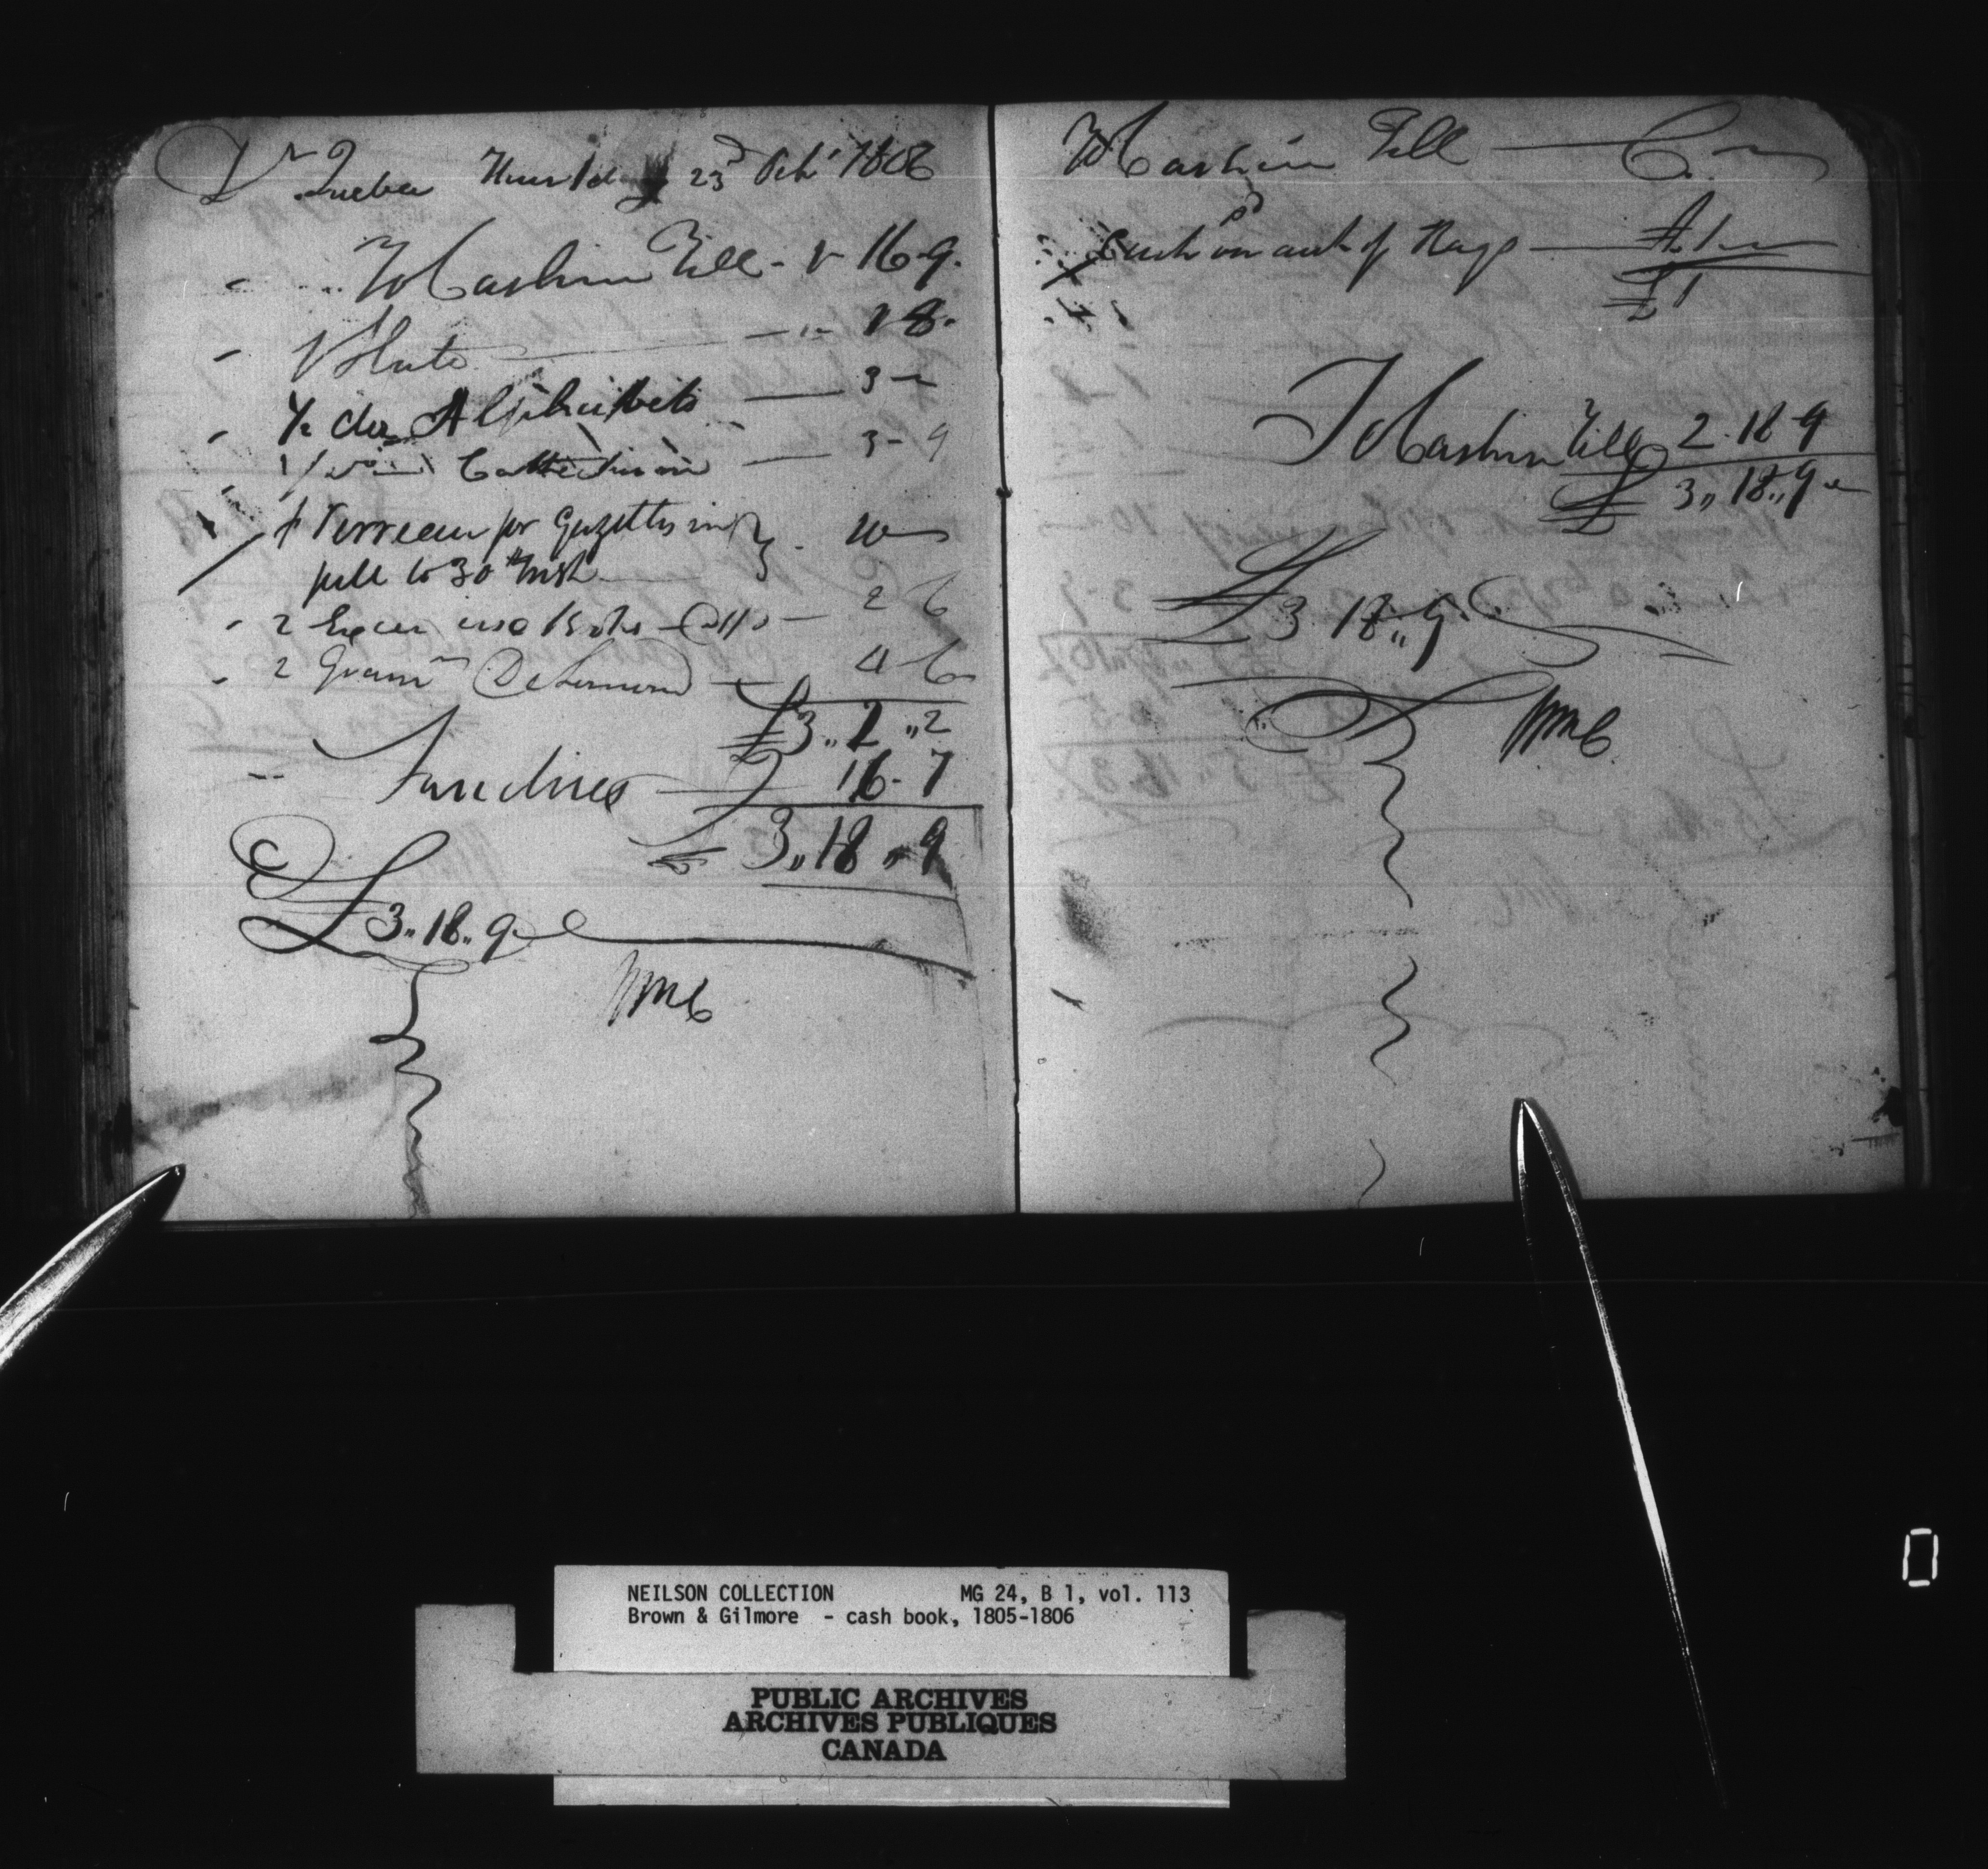 Dr Quebec Thursday 23d Octr 1806
To Cash in Till - 1- 16-9.
1 Slate 1 8.
1/2 doz Alphabets 3 -
1/2 do Cathechism 3 - 9
Verreau for Gazettes in
full to 30th Inst 10
2 2 6
2 Gram 4 6
£3,, 2 ,,2
Sundries 16- 7
£ 3,, 18 ,, 9
£3,, 18,, 9
WMC
To Cash in Till Cr
pd Cash on acct of Rags £1
£1
To Cash in Till 2. 18 - 9
£ 3,, 18,, 9
£3 18,, 9.
WMC
NEILSON COLLECTION MG 24, B 1, vol. 113
Brown & Gilmore - cash book, 1805-1806
PUBLIC ARCHIVES
ARCHIVES PUBLIQUES
CANADA
0